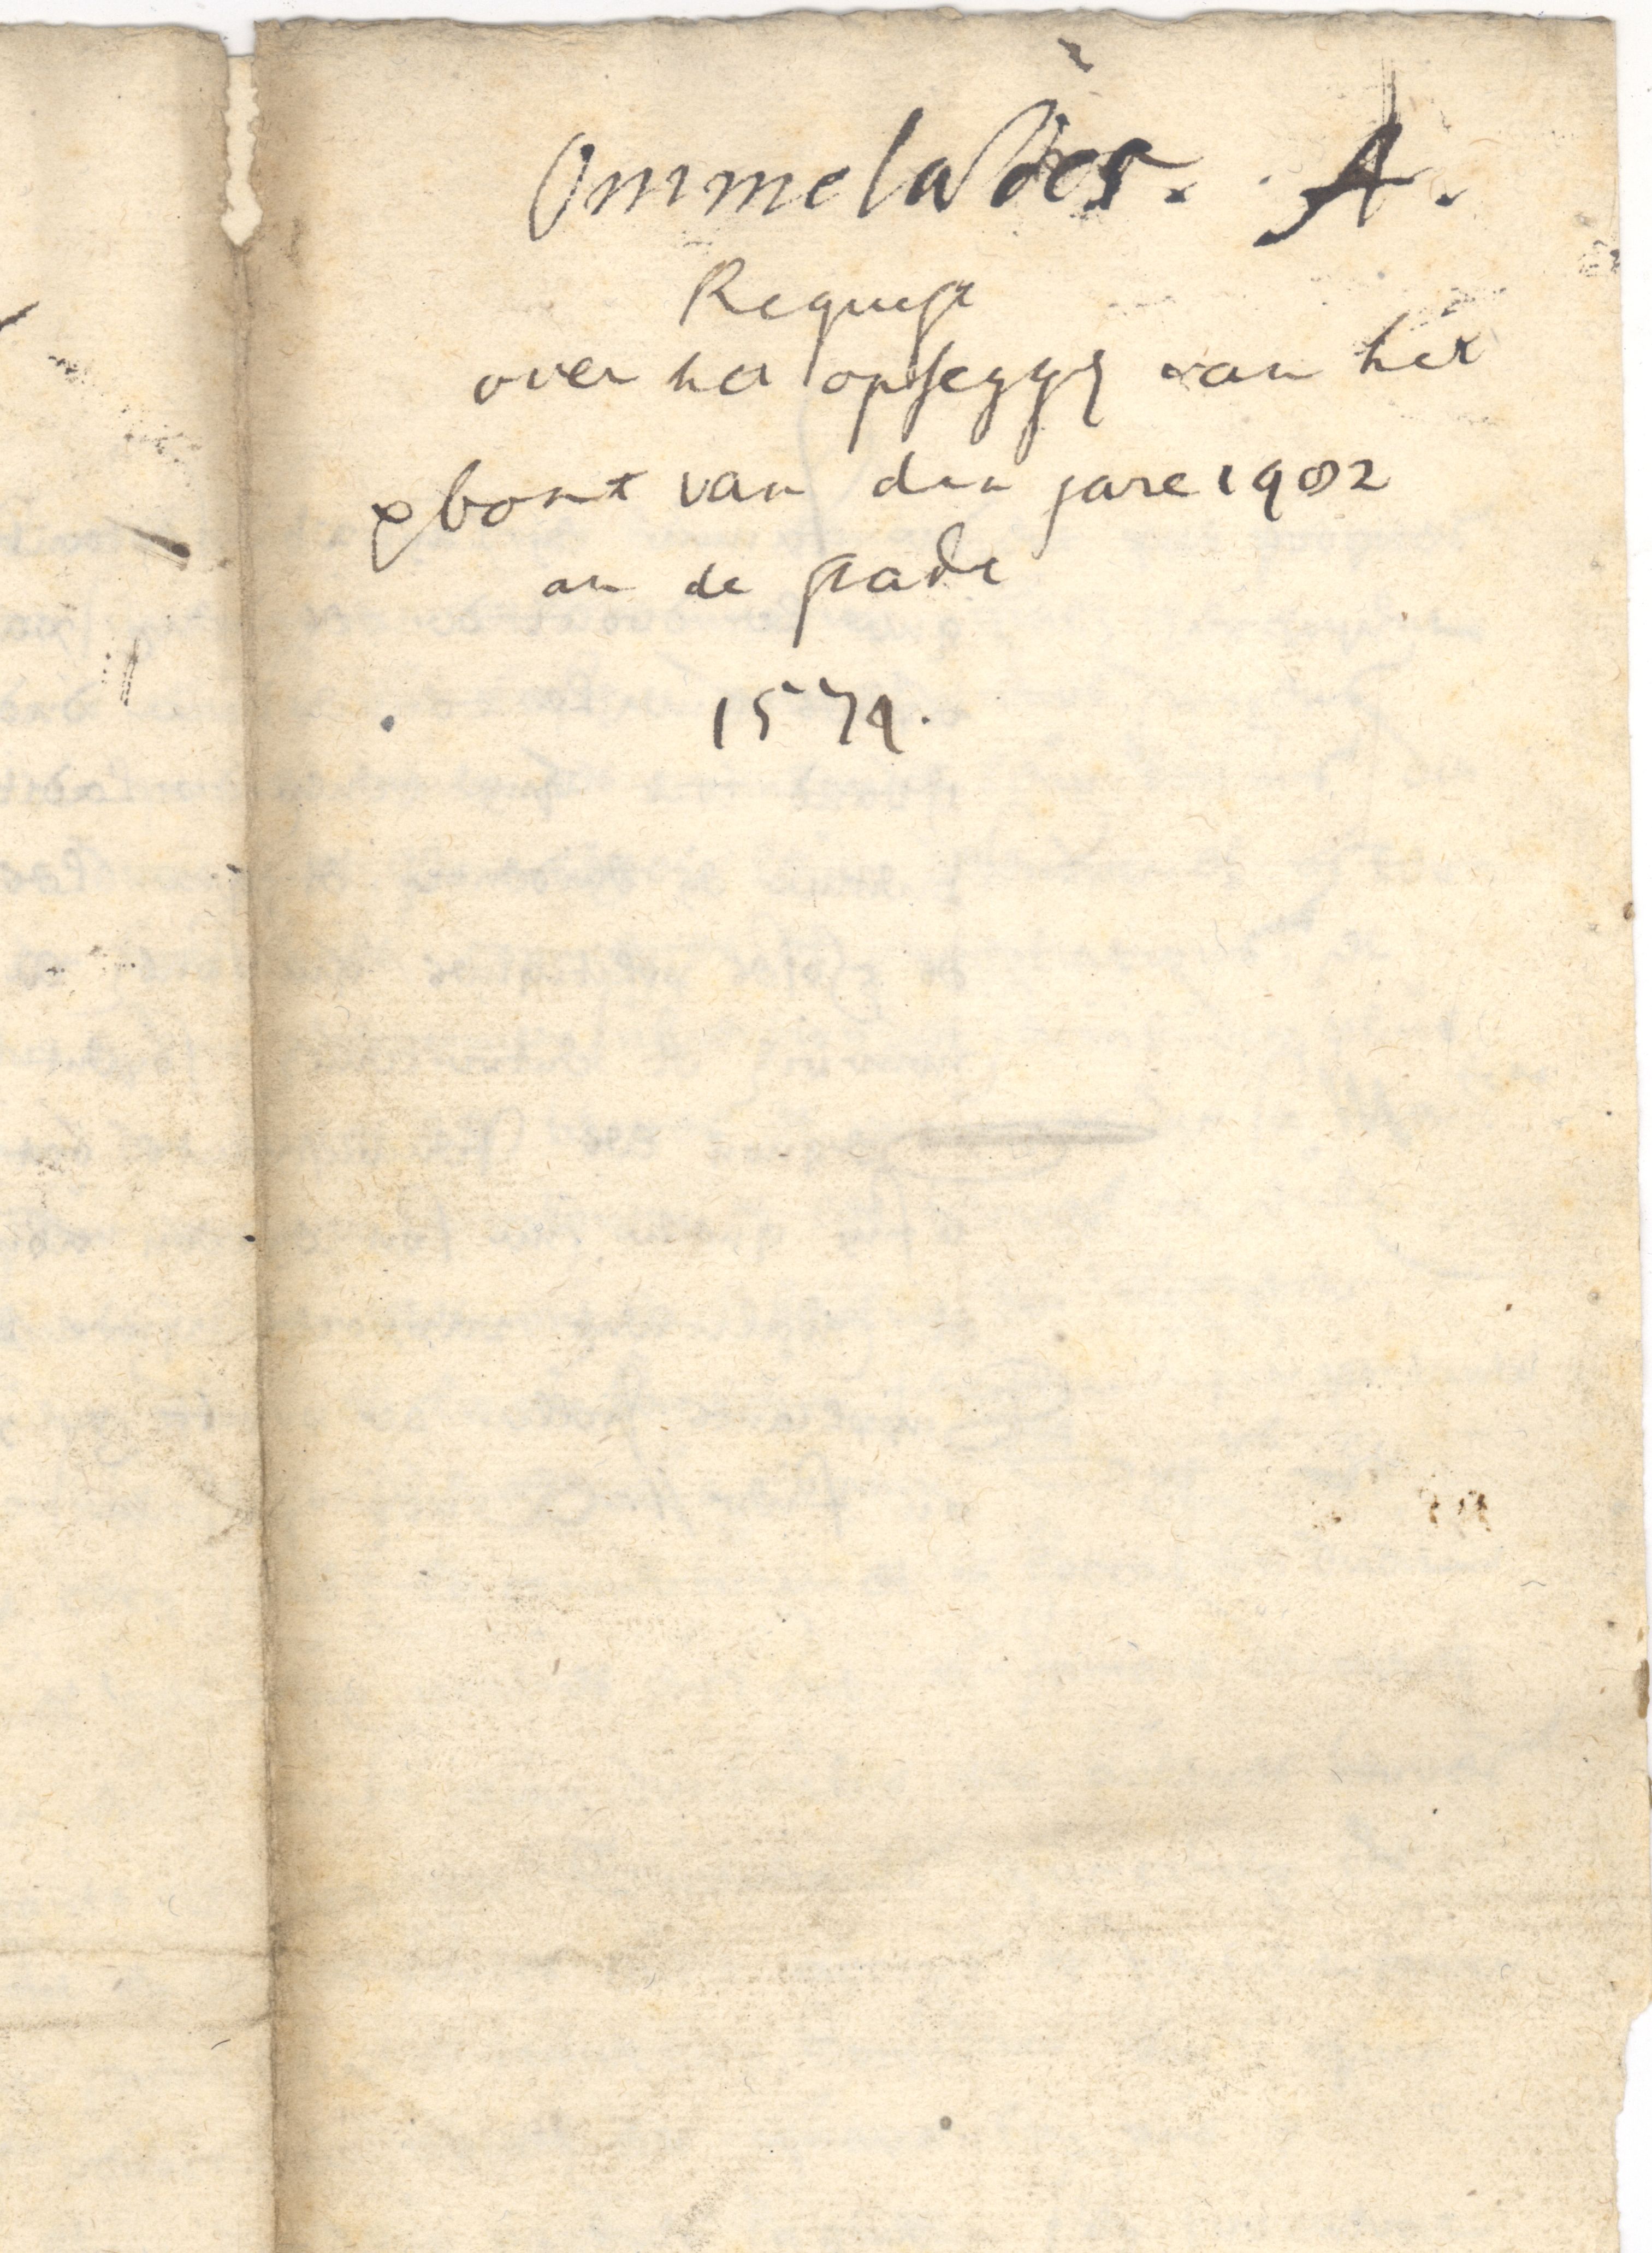 Ommeladēs. A.
Request
over het opseggē van het
verbont van den jare 1482
an de stadt
1579.